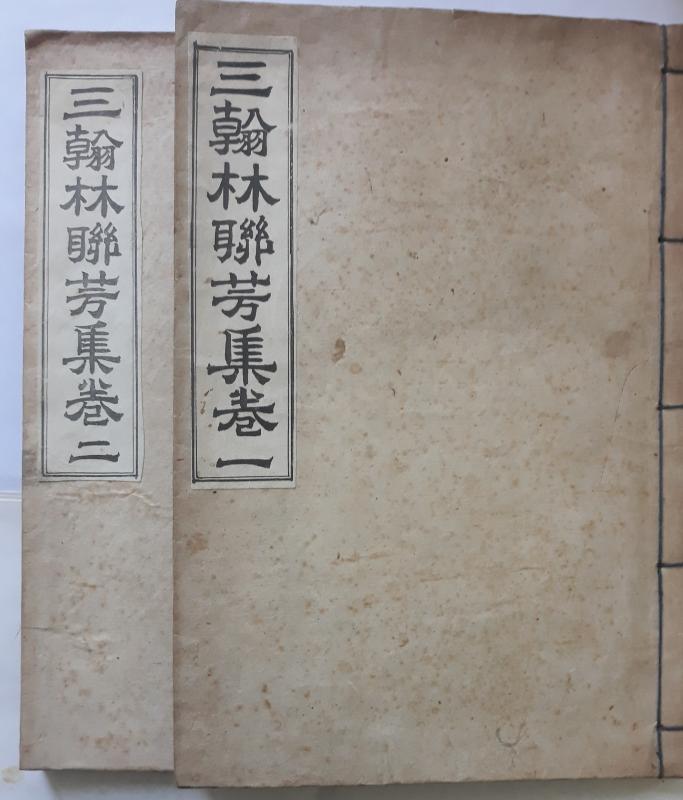 三翰林聯芳集卷一
三翰林聯芳集卷二